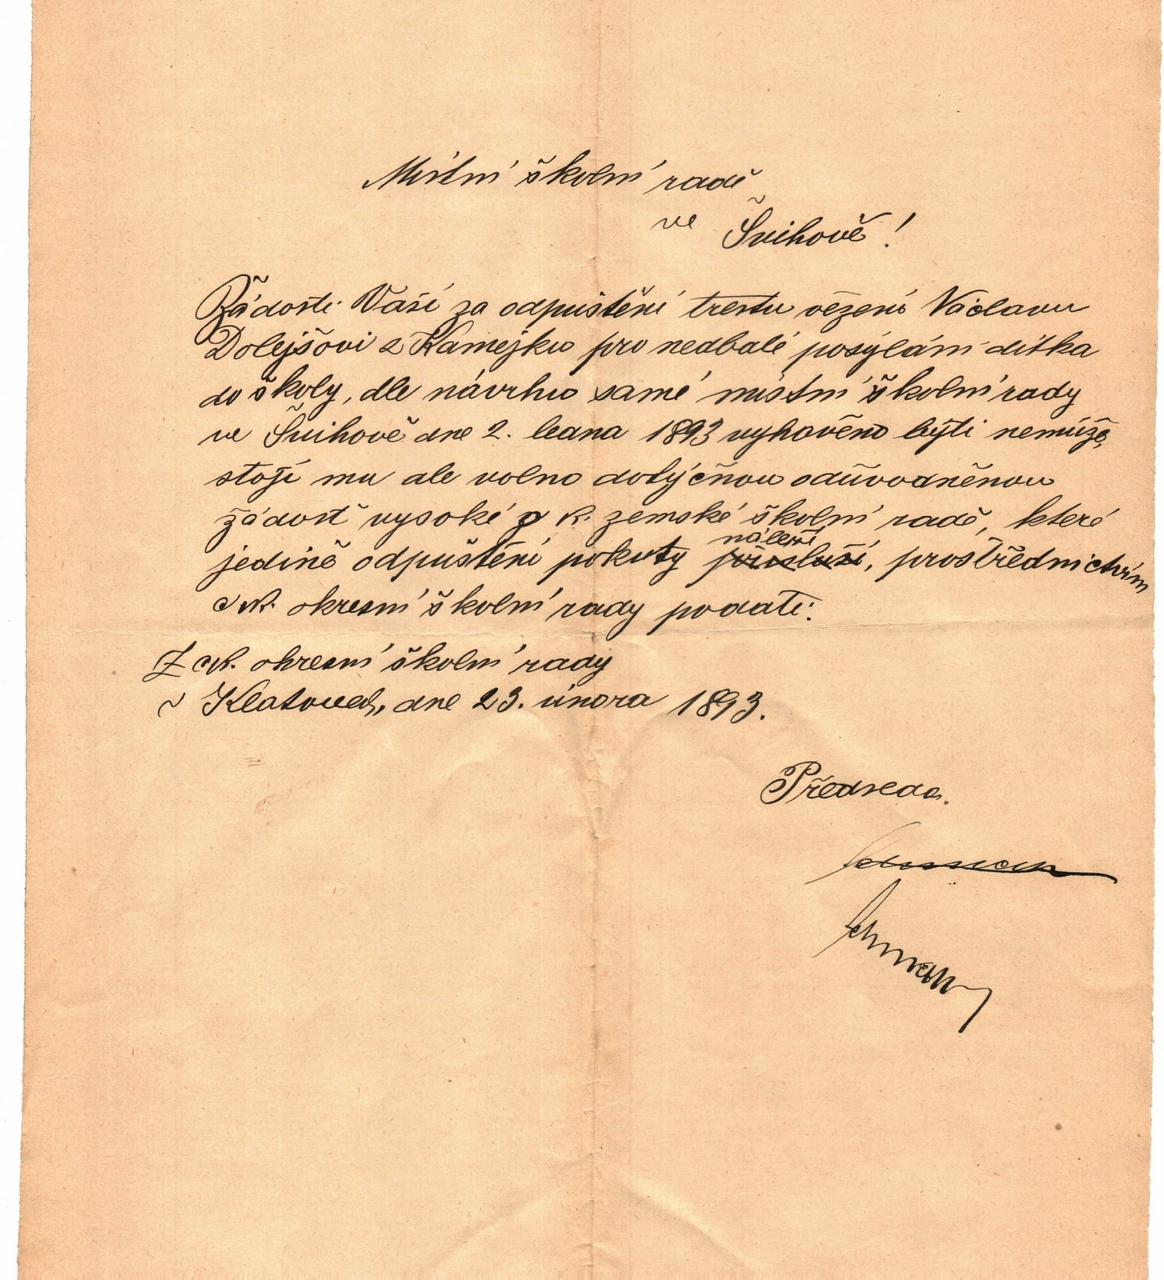 Místní školní radě
ve Švihově!
Žádosti Vaší za odpuštění trestu vězení Václavu
Dolejšovi z Kamejku pro nedbalé posýlání dítka
do školy, dle návrhu samé místní školní rady
ve Švihově dne 2. ledna 1893 vyhověno býti nemůže,
stojí mu ale volno dotýčnou odůvodněnou
žádost vysoké c. k. zemské školní radě, které
náleží
jedině odpuštění pokuty přísluší, prostřednictvím
c. k. okresní školní rady podati.
Z c. k. okresní školní rady
v Klatovech, dne 23. února 1893.
Předseda.